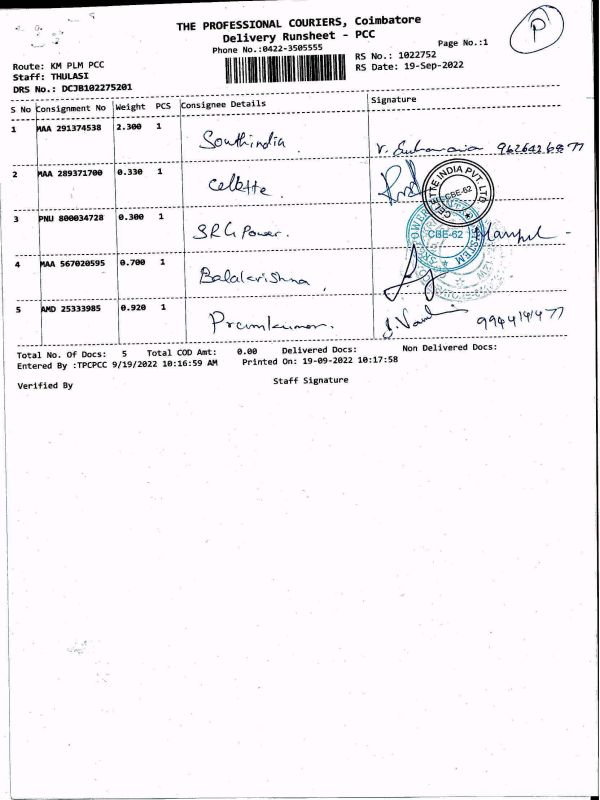 P
THE PROFESSIONAL COURIERS, Coimbatore
Delivery Runsheet - PCC
Phone No.:0422-3505555
Page No.:1
Route: KM PLM PCC
Staff: THULASI
DRS No.: DCJB102275201
RS No.: 1022752
RS Date: 19-Sep-2022
S No Consignment No Weight PCS Consignee Details Signature
1 MAA 291374538 2.300 1 Southindia
2 MAA 289371700 0.330 1 Cellette
CELETTE INDIA PVT. LTD. CBE-62
3 PNU 800034728 0.300 1 SRG Power.
CBE-62
4 MAA 567020595 0.700 1 Balakrishna
5 AMD 25333985 0.920 1 Premkumar.
Total No. Of Docs: 5 Total COD Amt: 0.00 Delivered Docs: Non Delivered Docs:
Entered By :TPCPCC 9/19/2022 10:16:59 AM Printed On: 19-09-2022 10:17:58
Verified By Staff Signature